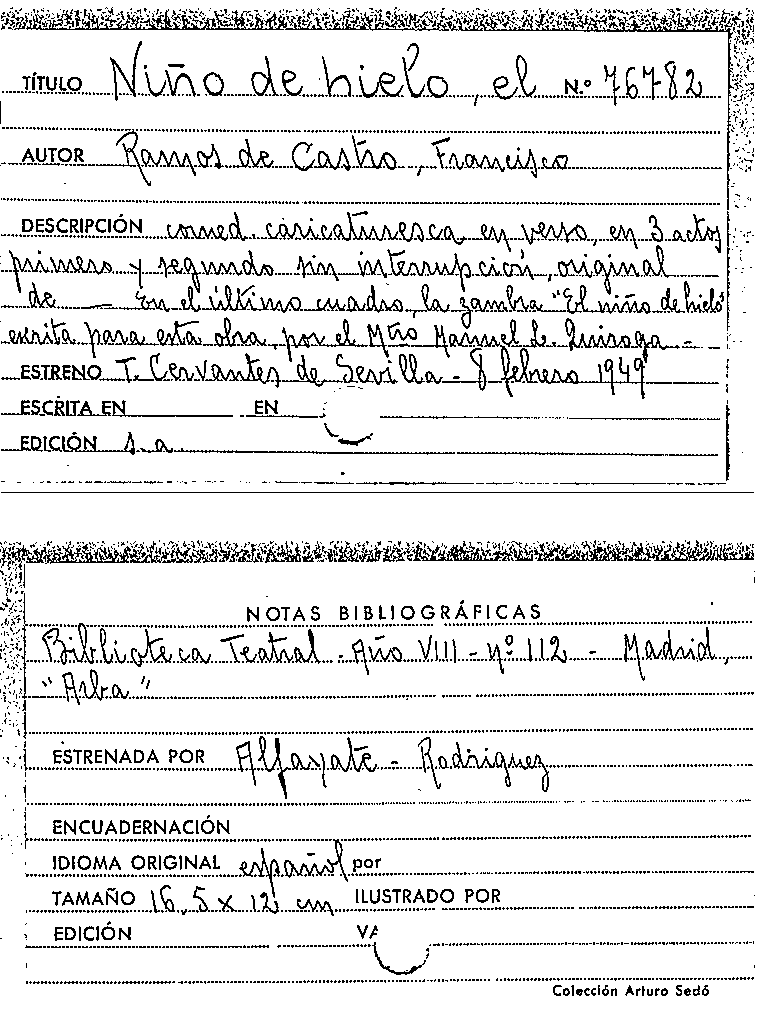 TÍTULO Niño de hielo, el N.º 76782
AUTOR Ramos de Castro, Francisco
DESCRIPCIÓN comed. caricaturesca en verso, en 3 actos
primero y segundo sin interrupción, original
de — En el último cuadro, la zambra "El niño de hielo"
escrita para esta obra, por el Mtro Manuel L. Quiroga -
ESTRENO T. Cervantes de Sevilla - 8 febrero 1949
ESCRITA EN EN
EDICIÓN s.a.
NOTAS BIBLIOGRÁFICAS
Biblioteca Teatral - Año VIII - nº 112 - Madrid,
"Arba"
ESTRENADA POR Alfayate - Rodriguez
ENCUADERNACIÓN
IDIOMA ORIGINAL español por
TAMAÑO 16,5 x 12 cm ILUSTRADO POR
EDICIÓN
Colección Arturo Sedó